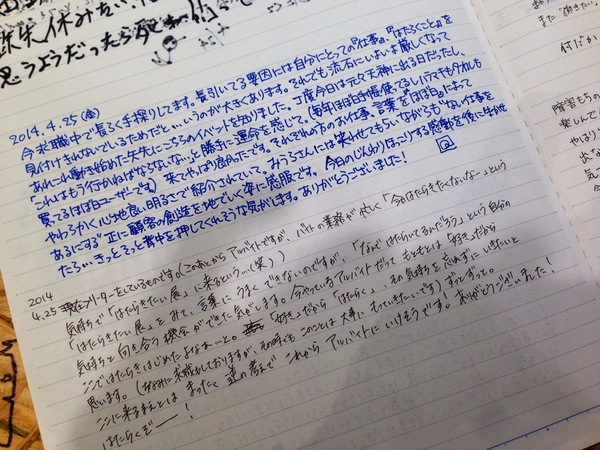 休みたい
思うようだったら
2014.4.25(金)
今求職中で長らく手探りしてます。長引いてる要因には自分にとっての『仕事』『はたらくこと』を
見付けきれないでいるためだと…いうのが大きくあります。それでも流石にいよいよ厳しくなって
あれこれ動き始めた矢先にこちらのイベントを知りました。丁度今日は元々天神に出る日だったし、
「これはもう行かねばならないな…」と勝手に運命を感じて。(毎年ほぼ日手帳使ってるしハラマキもタオルも
買ってるほぼ日ユーザーです)来てやっぱり良かったです。それぞれの方のお仕事、言葉を"ほぼ日"によって
やわらかく心地良い明るさで紹介されていて。みうらさんには笑わせてもらいながらもぶれない仕事を
あるにずず"正に顧客の創造を地でいく姿に感服です。今日のじんわりほっこりする感動を後に
たら…きっとそっと背中を押してくれそうな気がします。ありがとうございました!
2014
4.25 現在フリーターをしているものです。(このあとからアルバイトですが、バイトの業務が忙しく「今日はたらきたくないな…」という
気持ちで「はたらきたい展」に来るという…(笑))
「はたらきたい展」をみて、言葉にうまくできないのですが、「なんではたらいてるんだろう」という自分の
気持ちと向き合う機会ができた気がします。今やっているアルバイトだってもともとは「好き」だから
ここではたらきはじめたよなぁ…と。「好き」だから「はたらく」、その気持ちを忘れずにいきたいと
思います。(ちなみに求職もしておりますが、その時でもここのことは大事にもっていきたいです)ずっとずっと。
ここに来るまえとはまったく逆の考えでこれからアルバイトにいけそうです。ありがとうございました!
はたらくぞー!
また「働きたい」
何だか
障害をもち
楽しんで
やはり
気
今